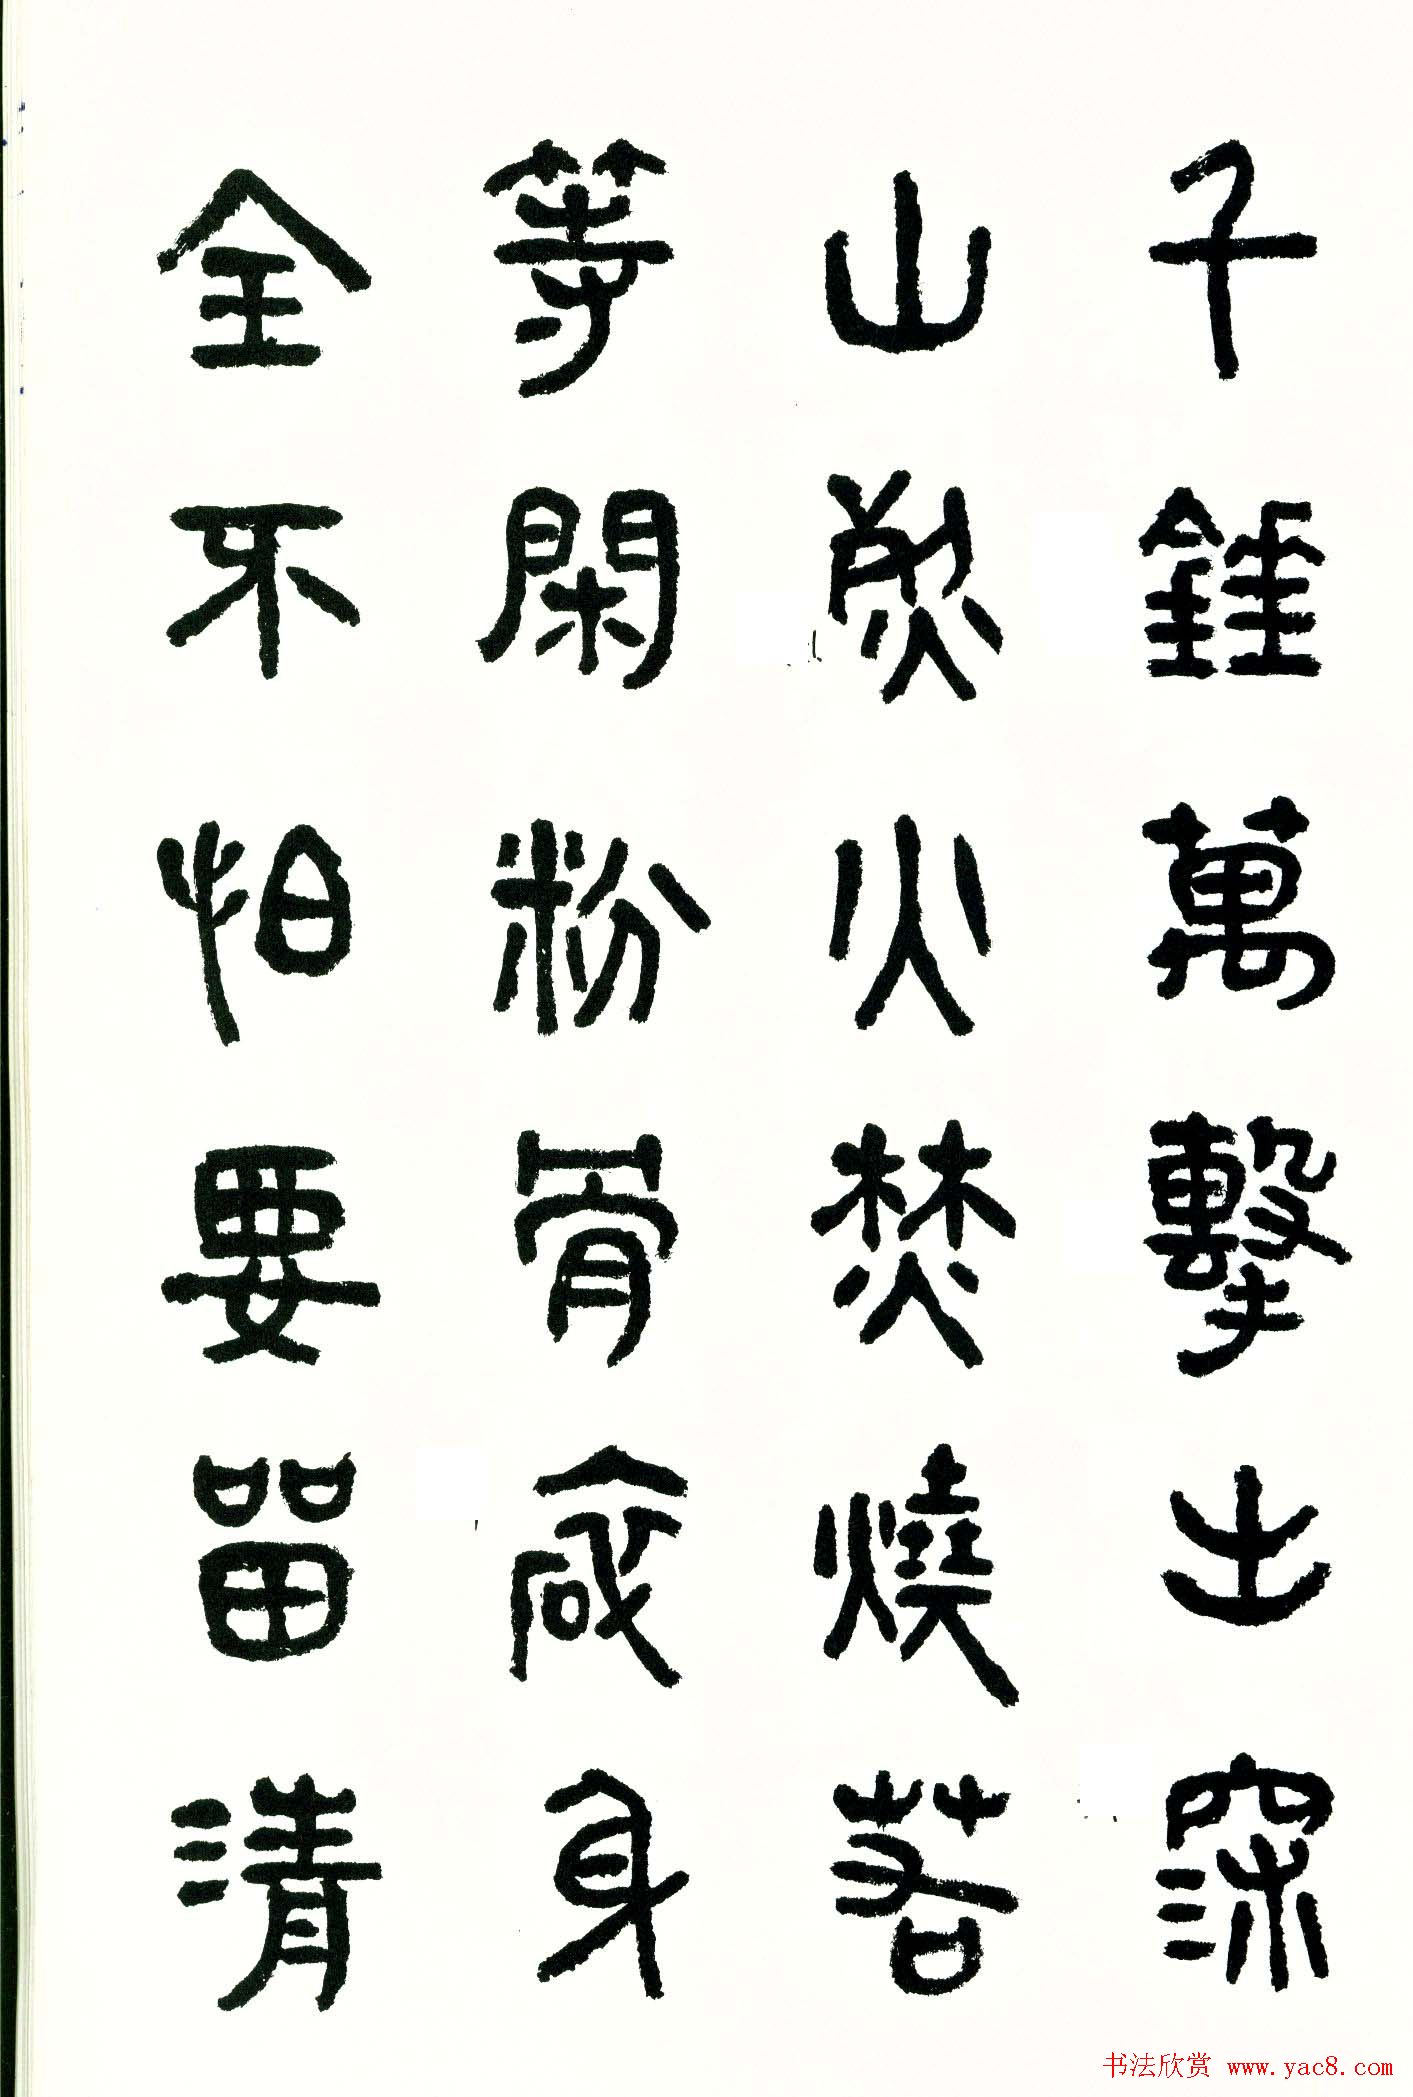 千錘萬擊出深
山烈火焚燒若
等閑粉骨碎身
全不怕要留清
书法欣赏 www.yac8.com